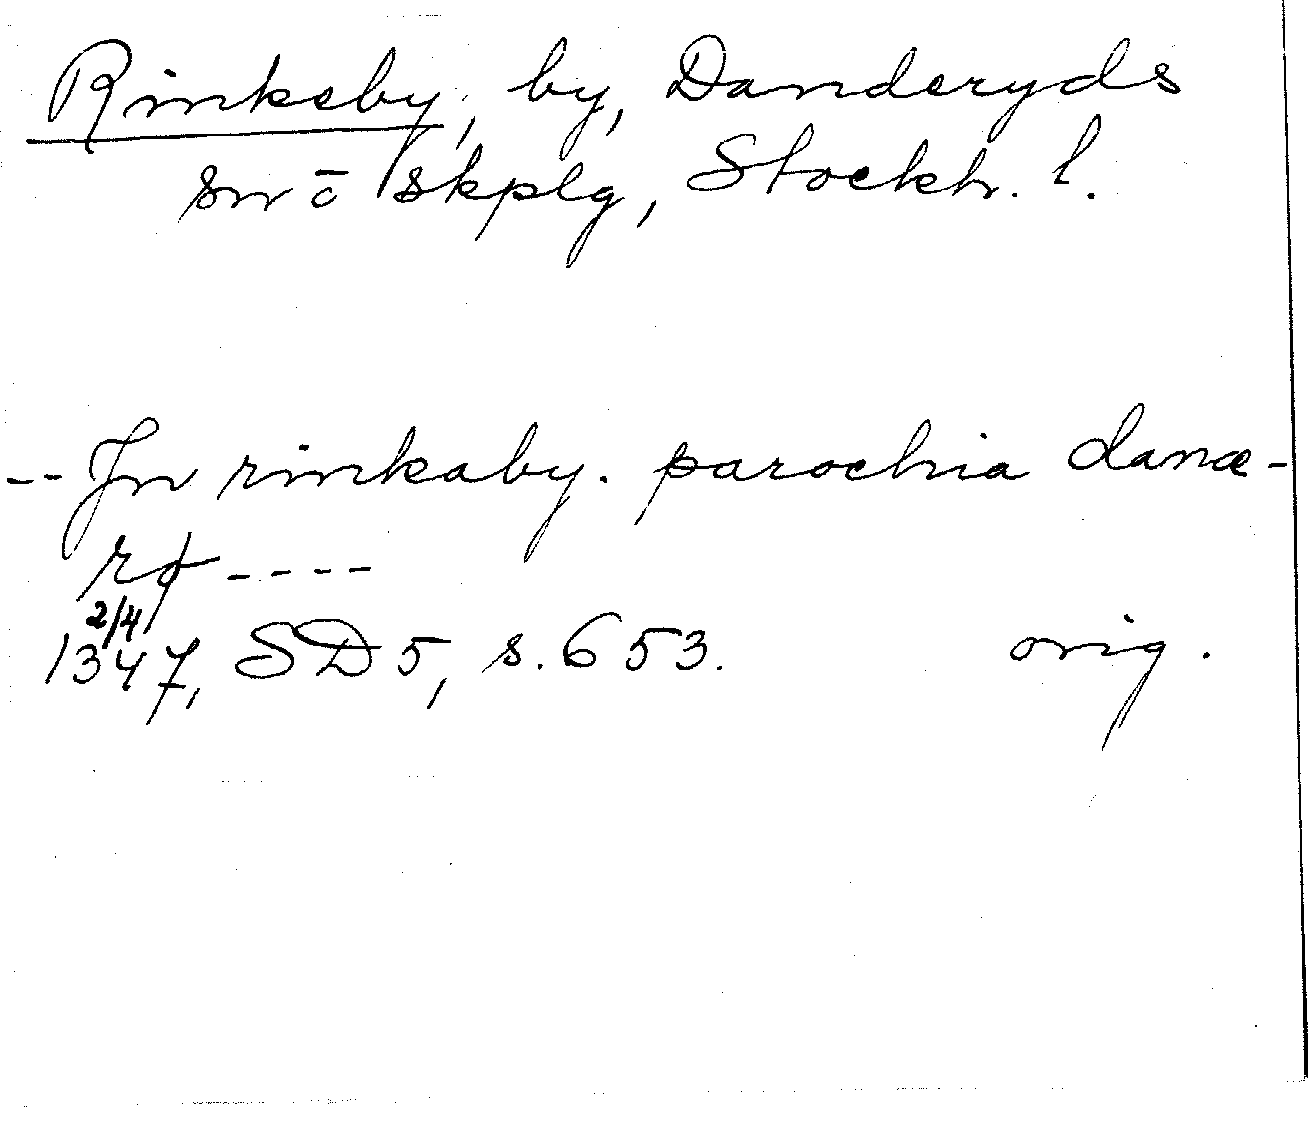 Rinkeby, by, Danderyds
sn o skplg, Stockh. l.
-- Jn rinkaby. parochia danæ-
rø ----
2/4
1347, SD 5, s. 653. orig.